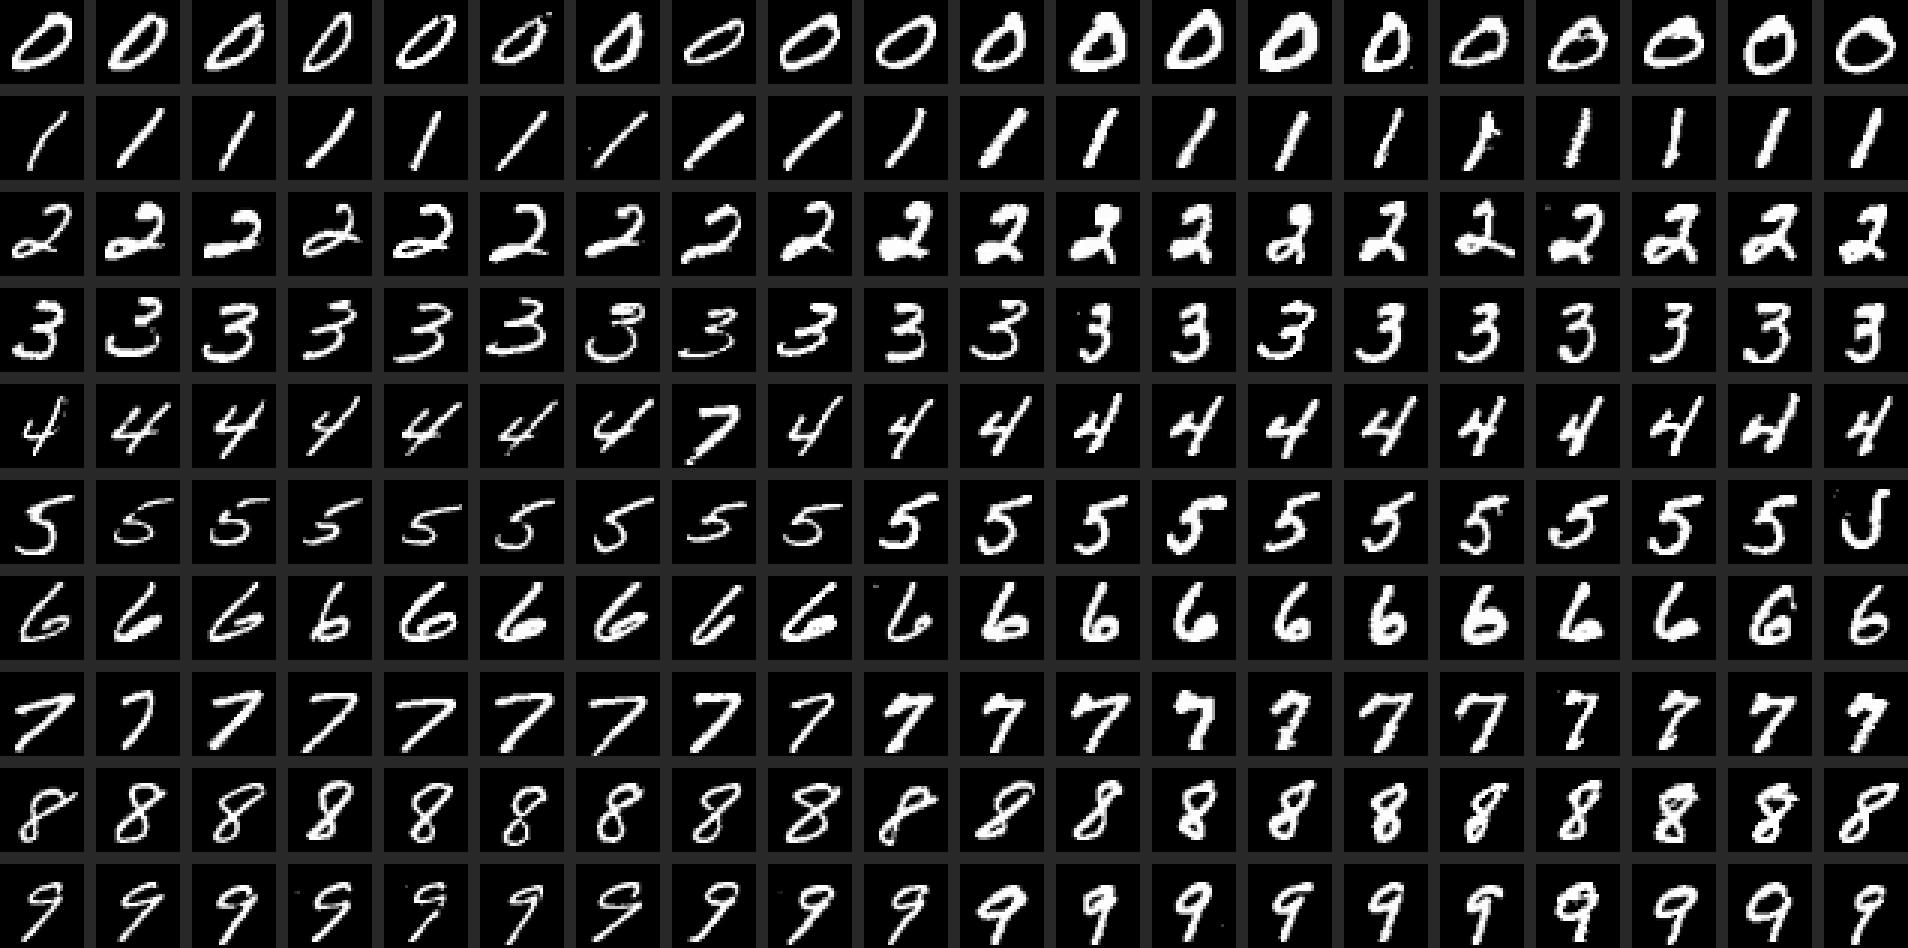 0 0 0 0 0 0 0 0 0 0 0 0 0 0 0 0 0 0 0 0
1 1 1 1 1 1 1 1 1 1 1 1 1 1 1 1 1 1 1 1
2 2 2 2 2 2 2 2 2 2 2 2 2 2 2 2 2 2 2 2
3 3 3 3 3 3 3 3 3 3 3 3 3 3 3 3 3 3 3 3
4 4 4 4 4 4 4 7 4 4 4 4 4 4 4 4 4 4 4 4
5 5 5 5 5 5 5 5 5 5 5 5 5 5 5 5 5 5 5
6 6 6 6 6 6 6 6 6 6 6 6 6 6 6 6 6 6 6 6
7 7 7 7 7 7 7 7 7 7 7 7 7 7 7 7 7 7 7 7
8 8 8 8 8 8 8 8 8 8 8 8 8 8 8 8 8 8 8 8
9 9 9 9 9 9 9 9 9 9 9 9 9 9 9 9 9 9 9 9